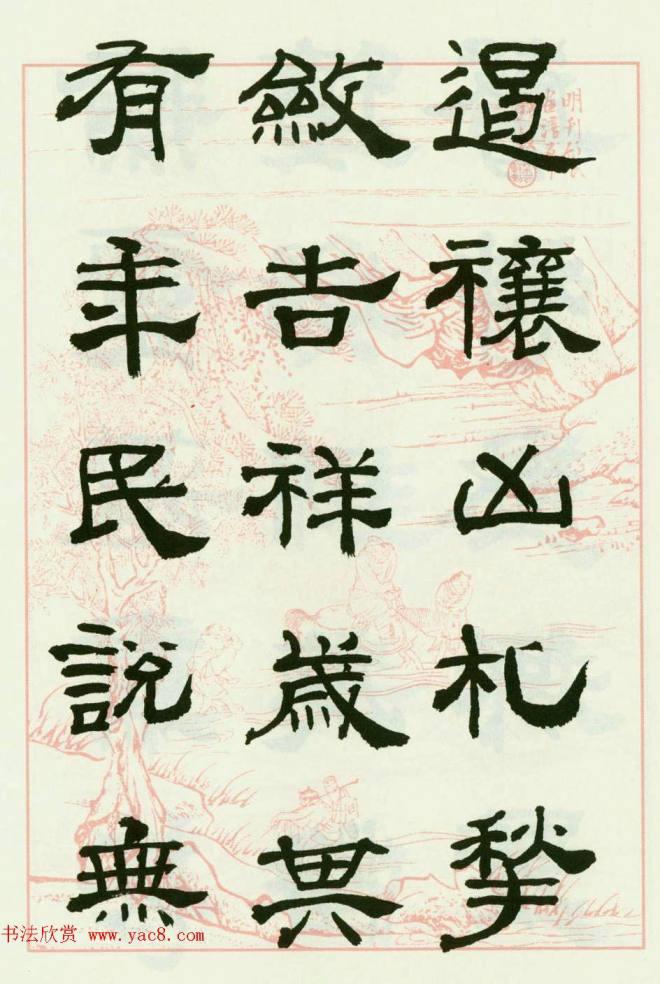 遏禳凶札揫
斂吉祥歲其
有年民說無
书法欣赏 www.yac8.com